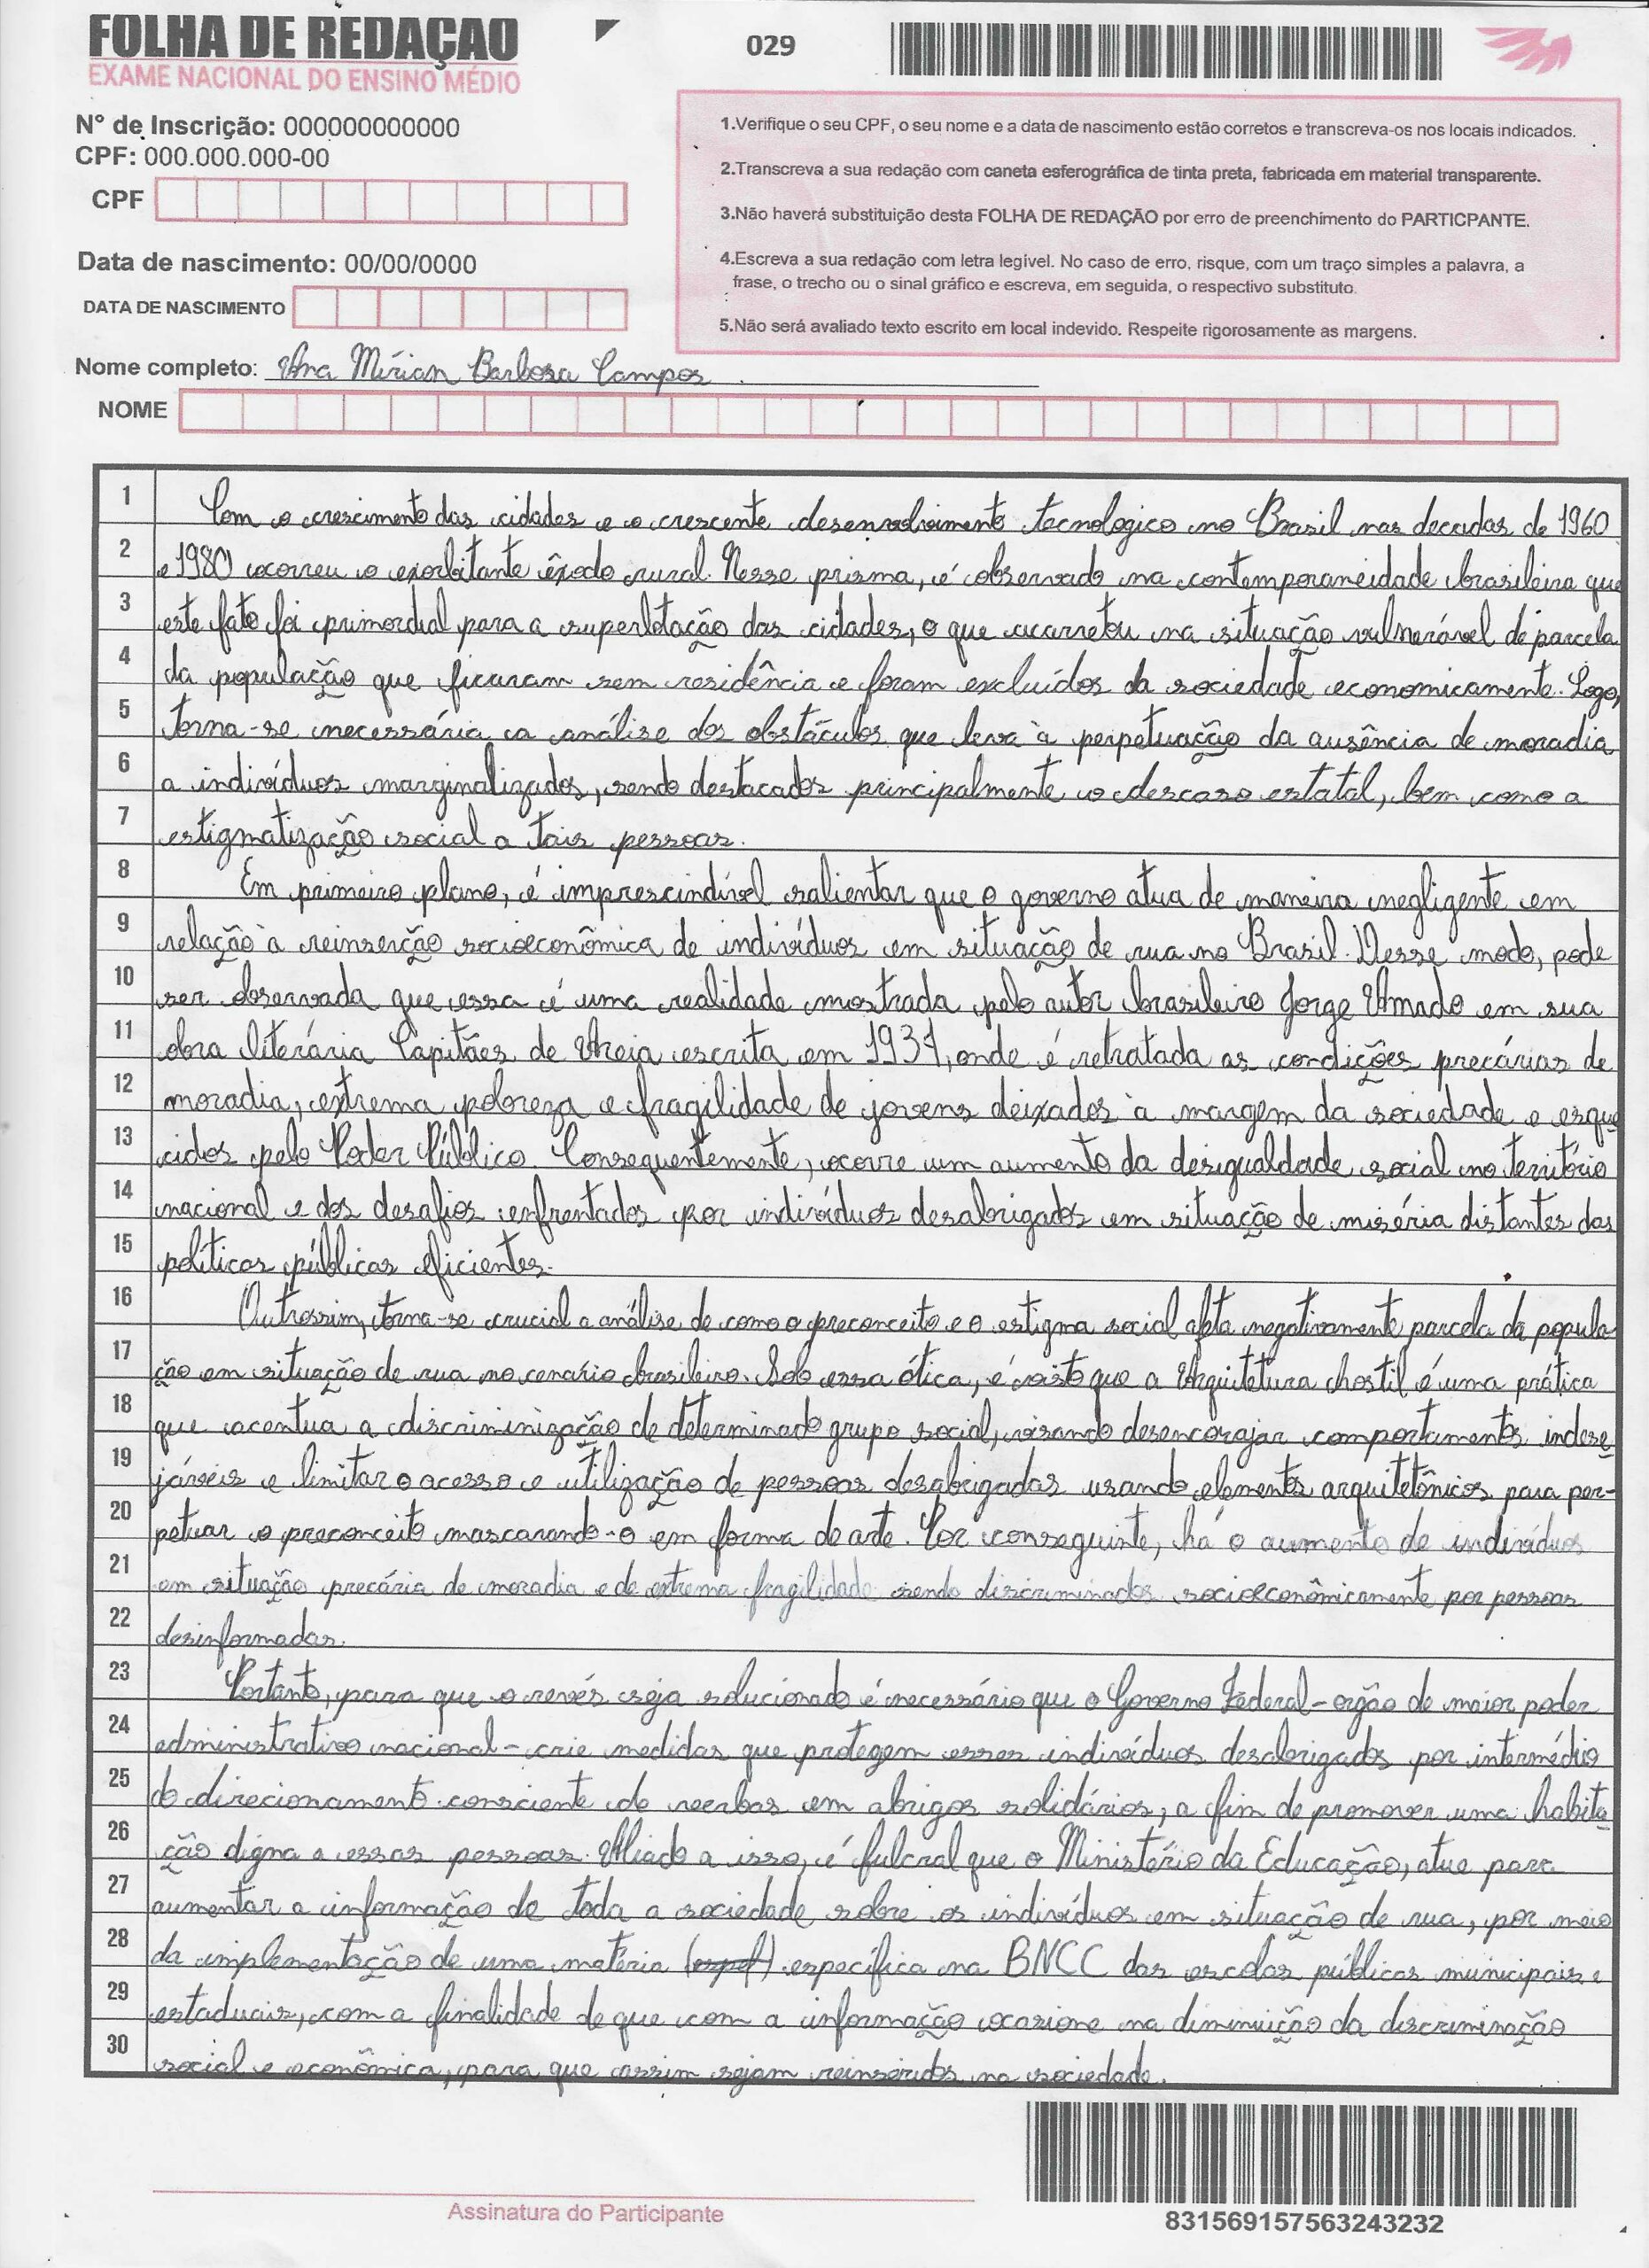 FOLHA DE REDAÇÃO
EXAME NACIONAL DO ENSINO MÉDIO
029
N° de Inscrição: 000000000000
CPF: 000.000.000-00
CPF
Data de nascimento: 00/00/0000
DATA DE NASCIMENTO
1.Verifique o seu CPF, o seu nome e a data de nascimento estão corretos e transcreva-os nos locais indicados.
2.Transcreva a sua redação com caneta esferográfica de tinta preta, fabricada em material transparente.
3.Não haverá substituição desta FOLHA DE REDAÇÃO por erro de preenchimento do PARTICPANTE.
4.Escreva a sua redação com letra legível. No caso de erro, risque, com um traço simples a palavra, a
frase, o trecho ou o sinal gráfico e escreva, em seguida, o respectivo substituto.
5.Não será avaliado texto escrito em local indevido. Respeite rigorosamente as margens.
Nome completo: Ana Mírian Barbosa Campos
NOME
1 Com o crescimento das cidades e o crescente desenvolvimento tecnologico no Brasil nas decadas de 1960
2 e 1980 ocorreu o exorbitante êxodo rural. Nesse prisma, é observado na contemporaneidade brasileira que
3 este fato foi primordial para a superlotação das cidades, o que acarretou na situação vulnerável de parcela
4 da população que ficaram sem residência e foram excluídos da sociedade economicamente. Logo,
5 torna-se necessária a análise dos obstáculos que leva à perpetuação da ausência de moradia
6 a indivíduos marginalizados, sendo destacados principalmente o descaso estatal, bem como a
7 estigmatização social a tais pessoas.
8 Em primeiro plano, é imprescindível salientar que o governo atua de maneira negligente em
9 relação à reinserção socioeconômica de indivíduos em situação de rua no Brasil. Desse modo, pode
10 ser observada que essa é uma realidade mostrada pelo autor brasileiro Jorge Amado em sua
11 obra literária Capitães de Areia escrita em 1937, onde é retratada as condições precárias de
12 moradia, extrema pobreza e fragilidade de jovens deixados à margem da sociedade e esque
13 cidos pelo Poder Público. Consequentemente, ocorre um aumento da desigualdade social no território
14 nacional e dos desafios enfrentados por indivíduos desabrigados em situação de miséria distantes das
15 políticas públicas eficientes.
16 Outrossim, torna-se crucial a análise de como o preconceito e o estigma social afeta negativamente parcela da popula-
17 ção em situação de rua no cenário brasileiro. Sob essa ótica, é visto que a Arquitetura hostil é uma prática
18 que acentua a discriminização de determinado grupo social, visando desencorajar comportamentos indese
19 jáveis e limitar o acesso e utilização de pessoas desabrigadas usando elementos arquitetônicos para per-
20 petuar o preconceito mascarando-o em forma de arte. Por conseguinte, há o aumento de indivíduos
21 em situação precária de moradia e de extrema fragilidade sendo discriminados socioeconômicamente por pessoas
22 desinformadas.
23 Portanto, para que o revés seja solucionado é necessário que o Governo Federal-orgão de maior poder
24 administrativo nacional-crie medidas que protegem esses indivíduos desabrigados por intermédio
25 do direcionamento consciente de verbas em abrigos solidários, a fim de promover uma habita
26 ção digna a essas pessoas. Aliado a isso, é fulcral que o Ministério da Educação, atue para
27 aumentar a informação de toda a sociedade sobre os indivíduos em situação de rua, por meio
28 da implementação de uma matéria específica na BNCC das escolas públicas municipais e
29 estaduais, com a finalidade de que com a informação ocasione na diminuição da discriminação
30 social e econômica, para que assim sejam reinseridos na sociedade.
Assinatura do Participante
831569157563243232